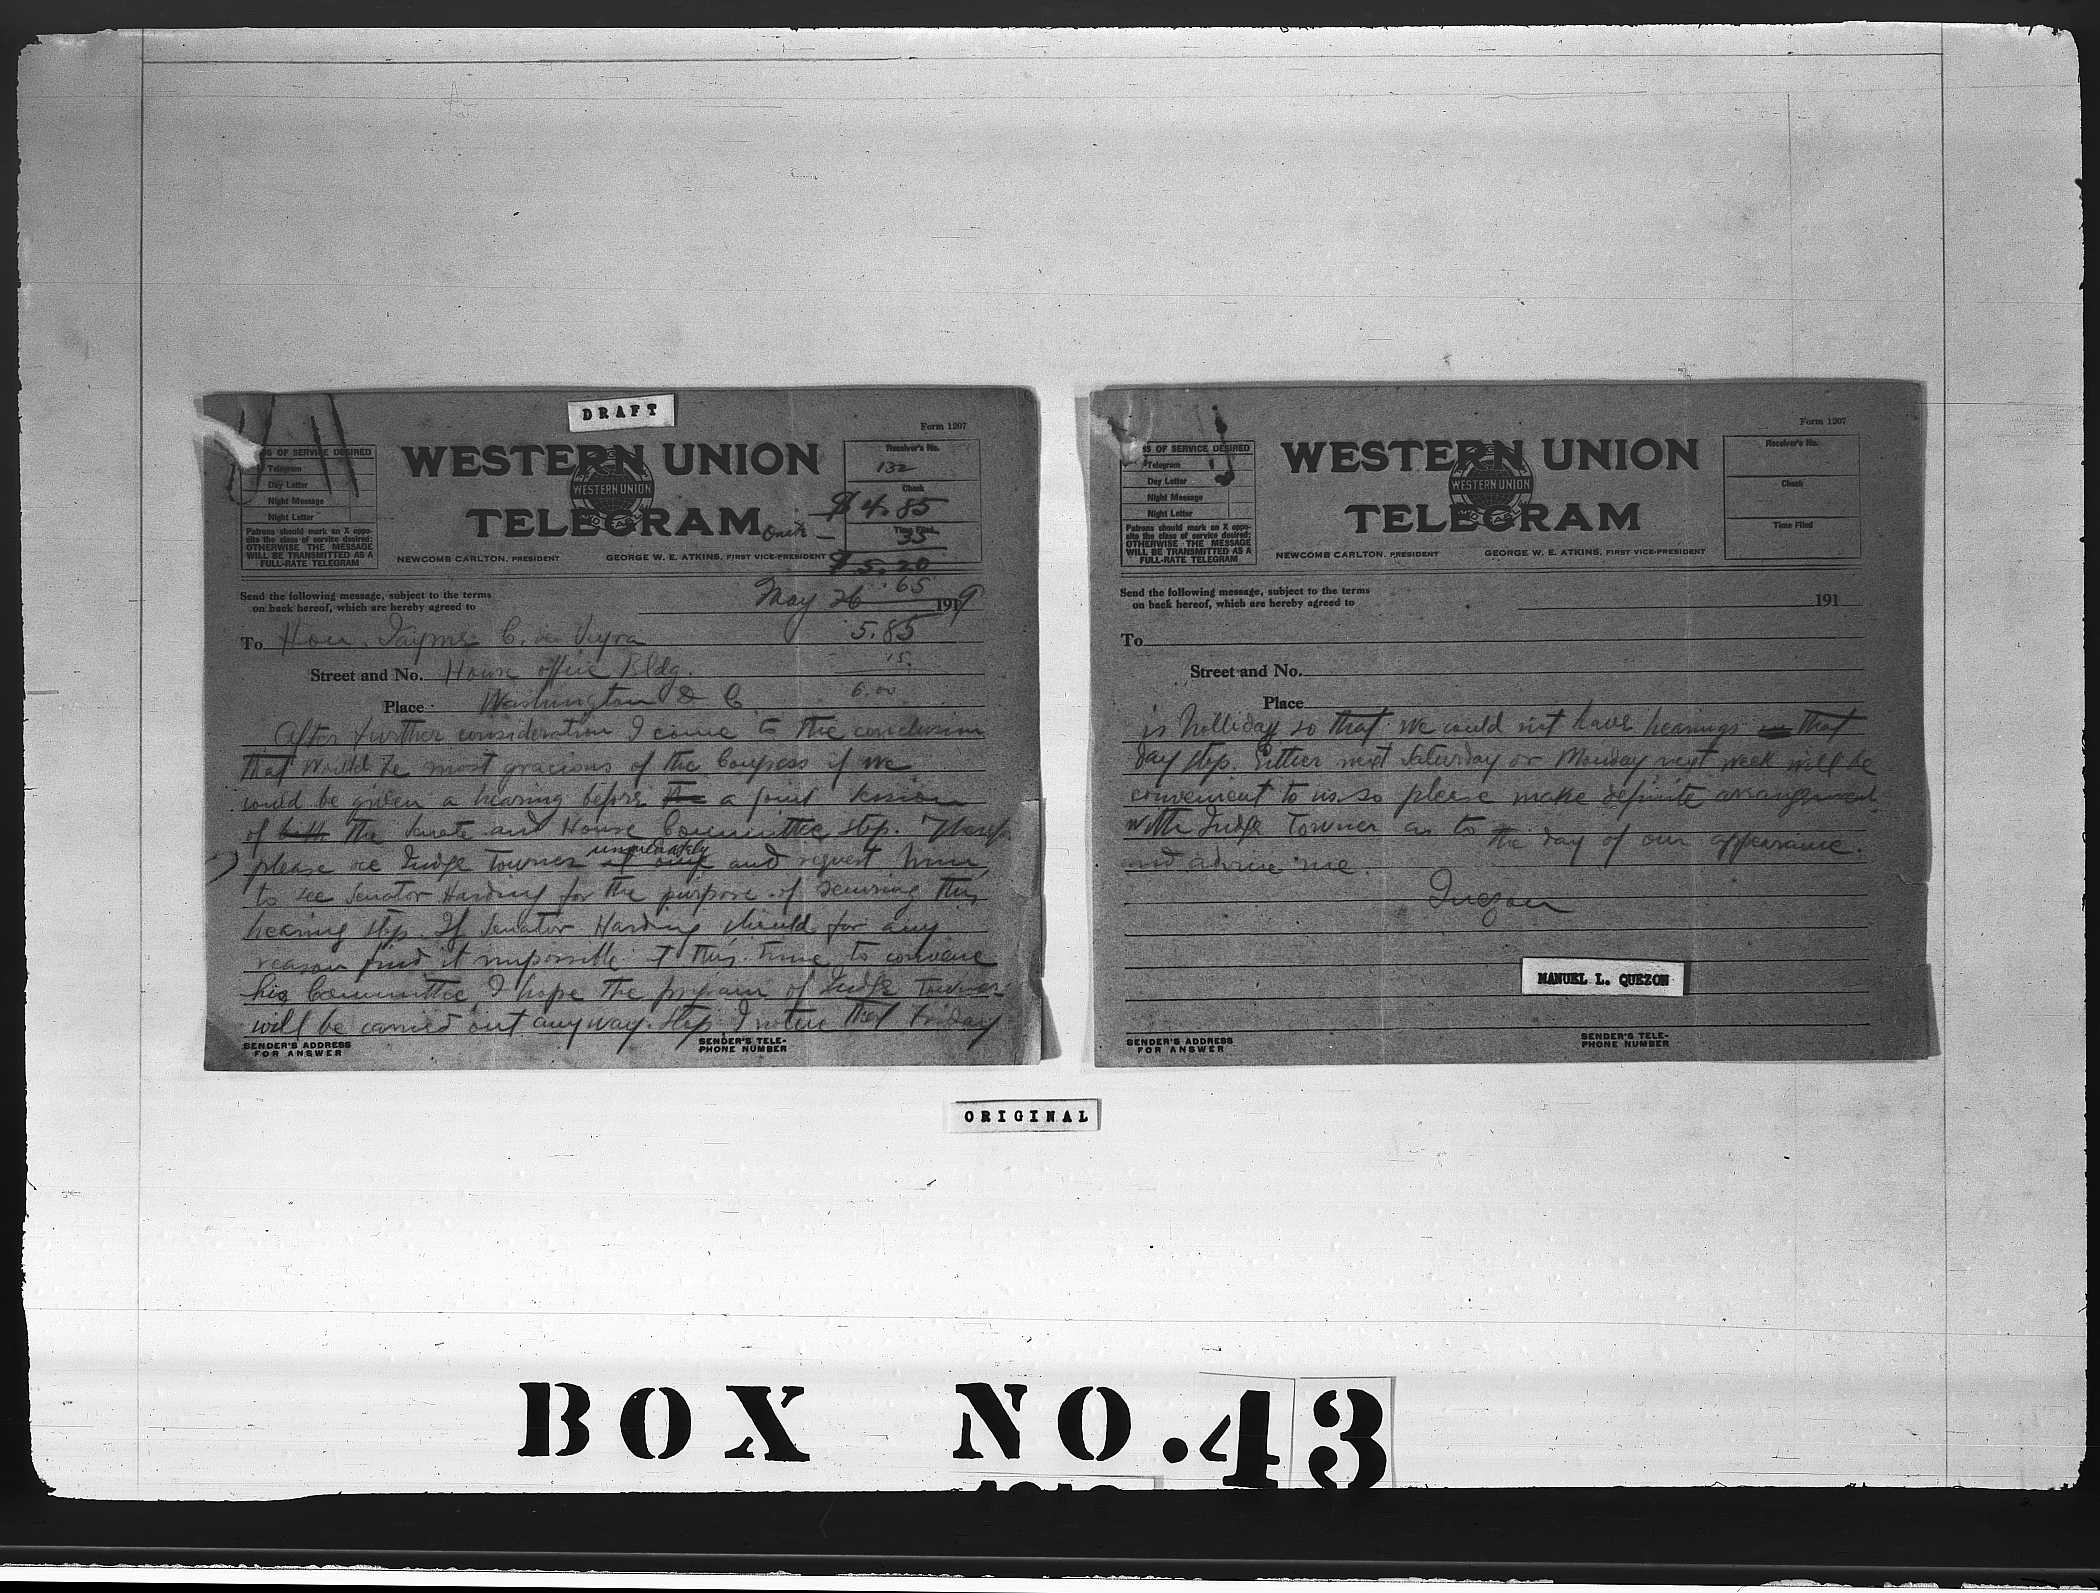 DRAFT
Form 1207
S OF SERVICE DESIRED
Telegram
Day Letter
Night Message
Night Letter
Patrons should mark an X oppo-
site the class of service desired;
OTHERWISE THE MESSAGE
WILL BE TRANSMITTED AS A
FULL-RATE TELEGRAM
WESTERN UNION
WESTERN UNION
TELEGRAM
NEWCOMB CARLTON, PRESIDENT
GEORGE W. E. ATKINS, FIRST VICE-PRESIDENT
Receiver's No.
132
Check
$4.85
Time Filed
35
$5.20
65
5.85
15
6.00
Send the following message, subject to the terms
on back hereof, which are hereby agreed to
May 26 1919
To Hon. Jayme C. de Veyra
Street and No. House office Bldg.
Place Washington D C
After further consideration I come to the conclusion
that would be most gracious of the Congress if we
could be given a hearing before the a joint session
of both the Senate and House Committee stop. Therefore
please see Judge Towner immediately and request him
to see Senator Harding for the purpose of securing this
hearing stop. If Senator Harding should for any
reason find it impossible at this time to convene
his Committee, I hope the program of Judge Towner
will be carried out anyway. Stop I notice that Friday
SENDER'S ADDRESS
FOR ANSWER
SENDER'S TELE-
PHONE NUMBER
Form 1207
S OF SERVICE DESIRED
Telegram
Day Letter
Night Message
Night Letter
Patrons should mark an X oppo-
site the class of service desired;
OTHERWISE THE MESSAGE
WILL BE TRANSMITTED AS A
FULL-RATE TELEGRAM
WESTERN UNION
WESTERN UNION
TELEGRAM
NEWCOMB CARLTON, PRESIDENT
GEORGE W. E. ATKINS, FIRST VICE-PRESIDENT
Receiver's No.
Check
Time Filed
Send the following message, subject to the terms
on back hereof, which are hereby agreed to
191
To
Street and No.
Place
is holliday so that we could not have hearings on that
day stop. Either next Saturday or Monday next week will be
convenient to us so please make definite arrangement
with Judge Towner as to the day of our appearance.
and advise me.
Quezon
MANUEL L. QUEZON
SENDER'S ADDRESS
FOR ANSWER
SENDER'S TELE-
PHONE NUMBER
ORIGINAL
BOX NO. 43